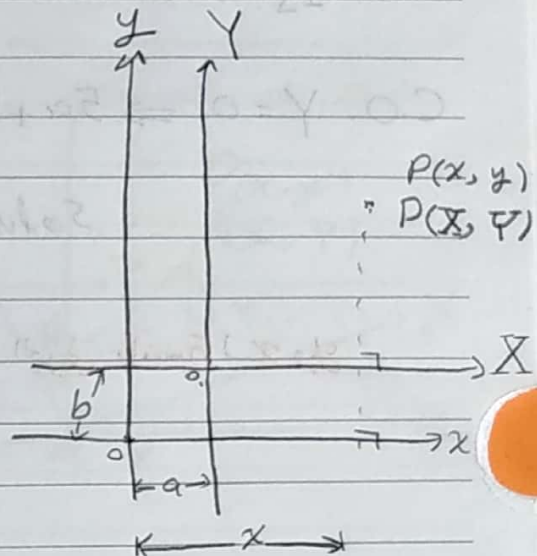 y Y
P(x, y)
P(X, Y)
X
O₁
b
O
x
a
x